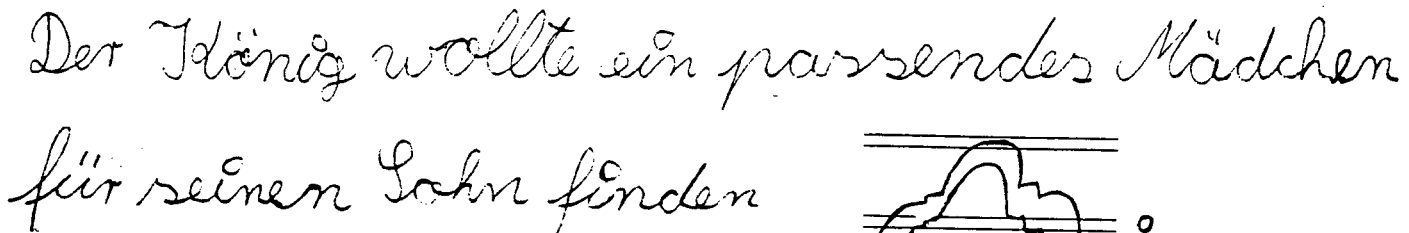 Der König wollte ein passendes Mädchen
für seinen Sohn finden